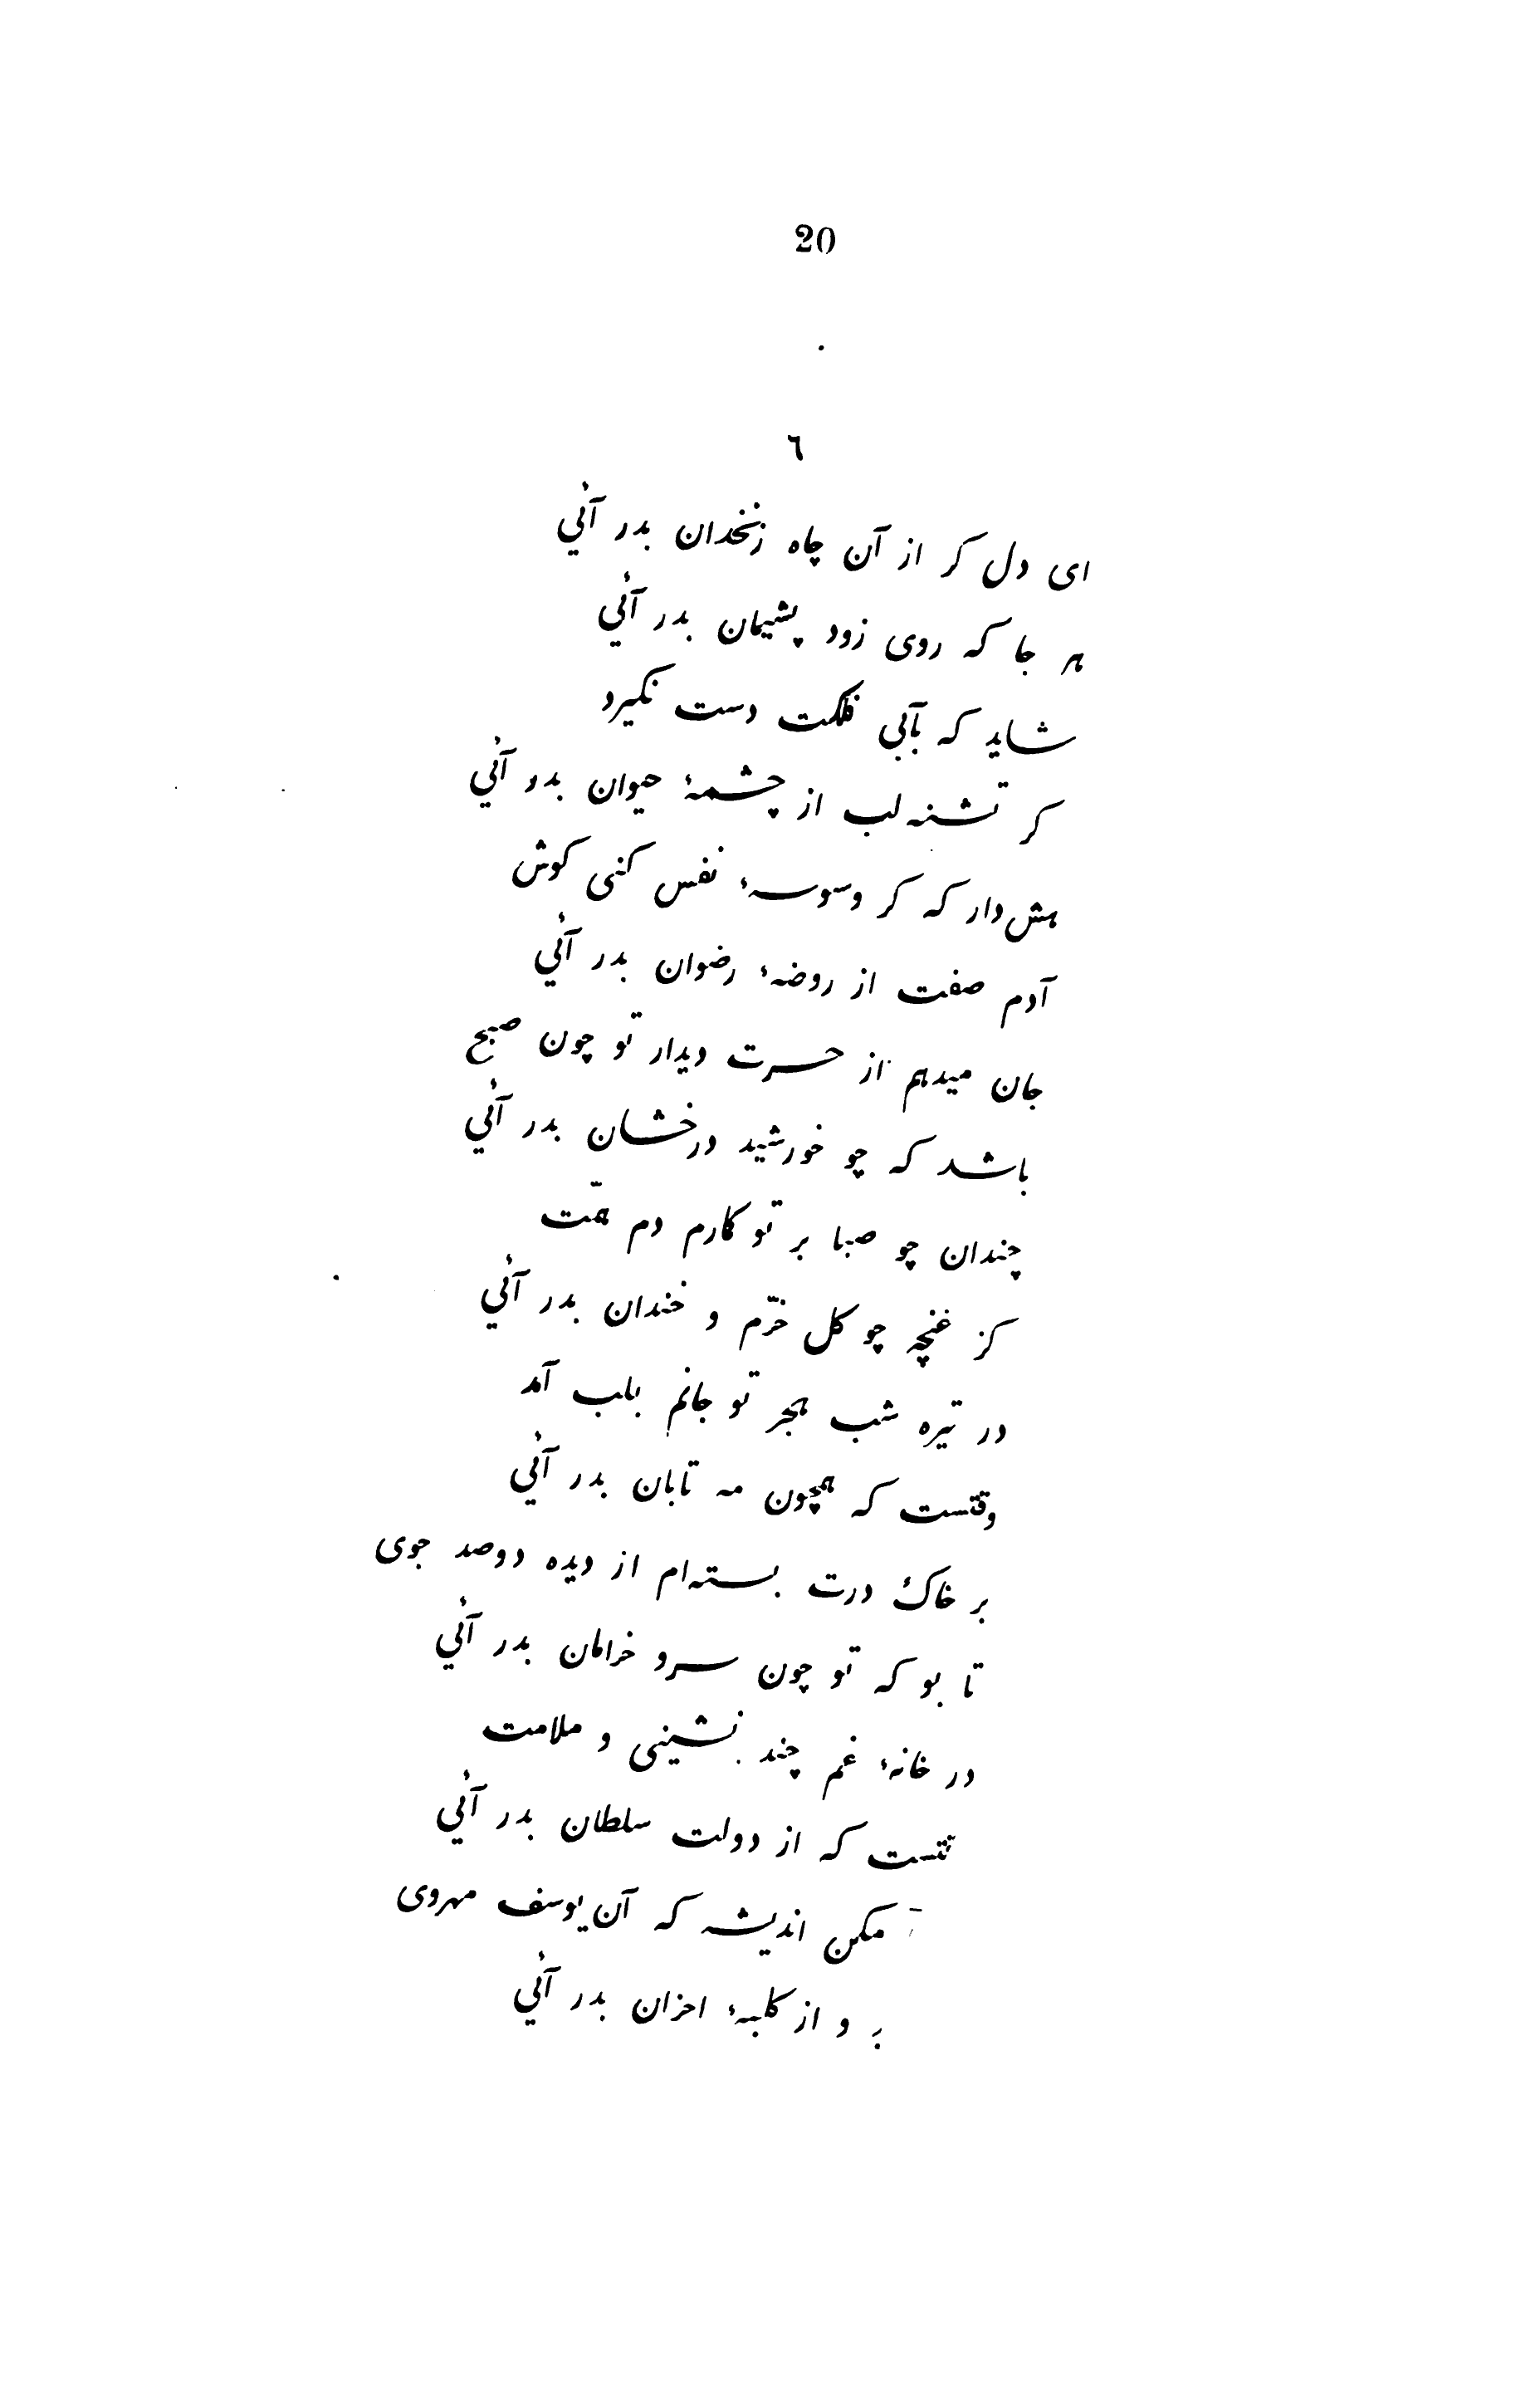 20
٦
ای دل کر از آن چاه زنخدان بدر آئي
هر جا که روی زود پشیمان بدر آئي
شاید که بآبی فلکت دست نکیرد
کر تشنه لب از چشمهٔ حیوان بدر آئي
هش دار که کر وسوسهٔ نفس کنی کوش
آدم صفت از روضهٔ رضوان بدر آئي
جان میدهم از حسرت دیدار تو چون صبح
باشد که چو خورشید درخشان بدر آئي
چندان چو صبا بر تو کارم دم همّت
کز غنچه چو کل خرّم و خندان بدر آئي
در تیره شب هجر تو جانم بلب آمد
وقتست که همچون مه تابان بدر آئي
بر خاک درت بسته‌ام از دیده دوصد جوی
تا بو که تو چون سرو خرامان بدر آئي
در خانهٔ غم چند نشینی و ملامت
که از دولت سلطان بدر آئي
مکن اندیشه که آن یوسف مهروی
و از کلبهٔ احزان بدر آئي